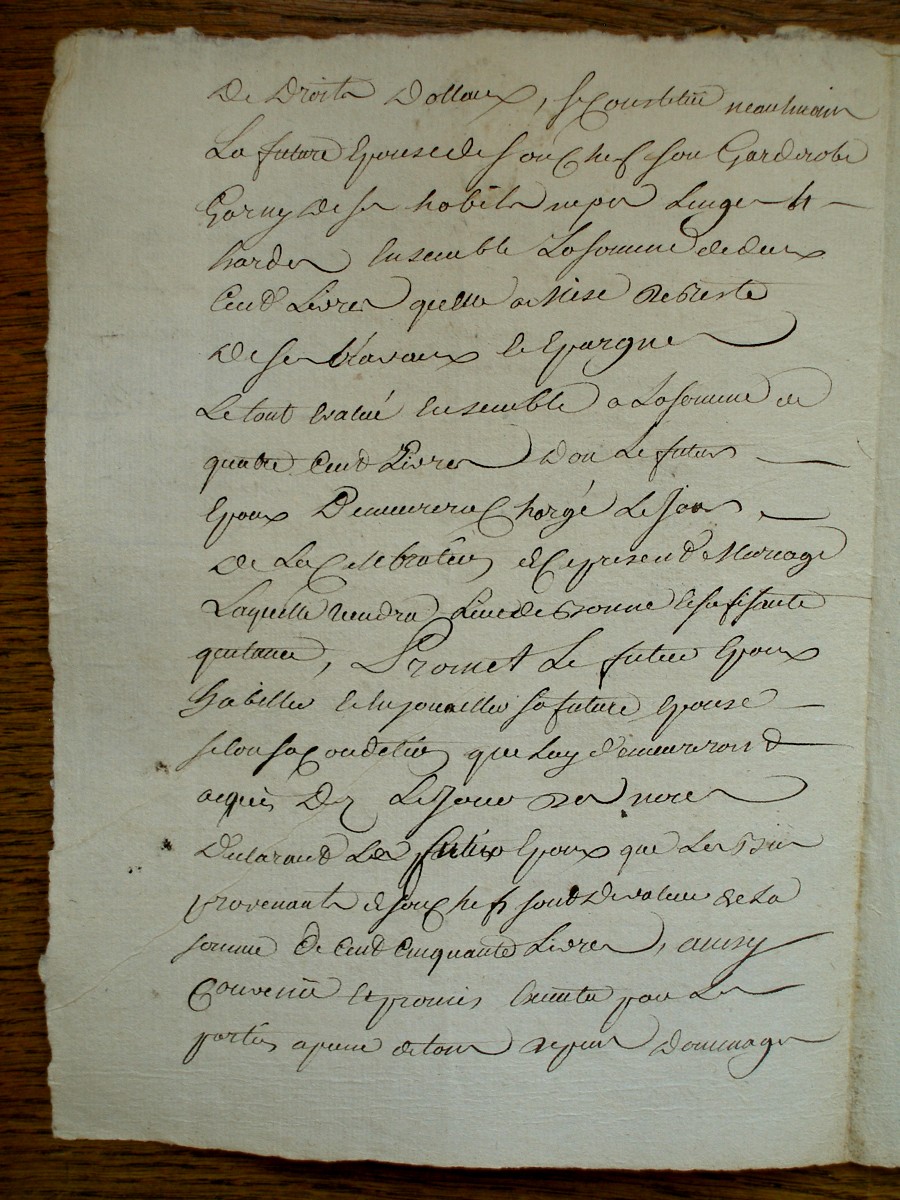 de droits dottaux, se constitue neanmoins
La future Epouse de son Chef son Garderobe
Garny de ses habits nepes Linges et
hardes Ensemble La somme de deux
Cent Livres quelle a Mise de Reste
de ses travaux et Epargnes
Le tout Evalué Ensemble a La somme de
quatre Cent Livres dou Le futur
Epoux Demeurera Chargé Le Jour
de La Celebration du present Mariage
Laquelle tiendra Lieu de bonne et sufisante
quitance, Promet Le futur Epoux
habiller et enjoueller sa future Epouse
selon sa Condition que Luy demeureront
acquis Dez Le Jour des noces
Declarant Le futur Epoux que Les biens
provenants de son Chef sont de valeur de La
somme de Cent Cinquante Livres, ainsy
Convenu et promis par Les
parties a peine de tous depens dommages